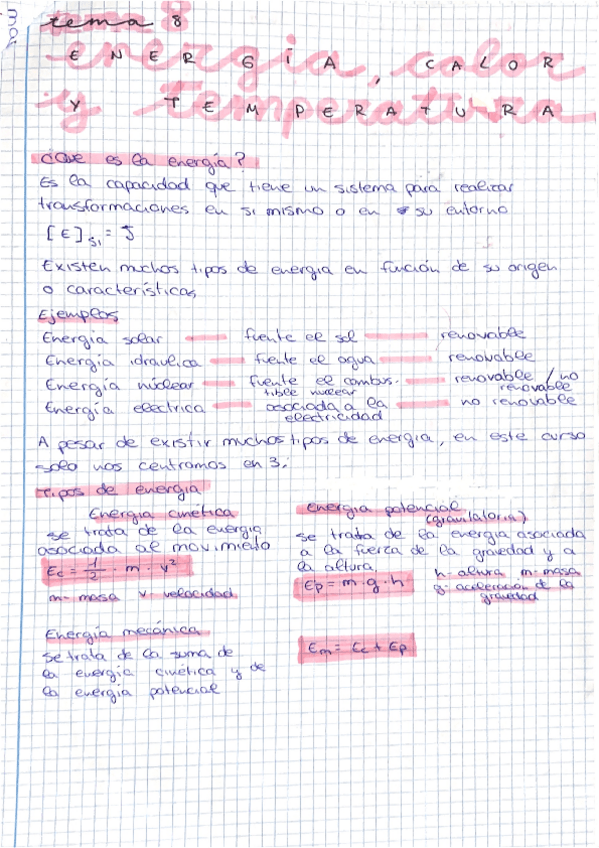 mai
tema 8
ENERGÍA, CALOR
Y TEMPERATURA
¿Que es la energía?
Es la capacidad que tiene un sistema para realizar
transformaciones en si mismo o en su entorno
[E]SI = J
Existen muchos tipos de energia en función de su origen
o características,
Ejemplos
Energía solar fuente el sol renovable
Energía idraulica fuente el agua renovable
Energía nuclear fuente el combus- renovable / no
tible nuclear renovable
Energía electrica asociada a la no renovable
electricidad
A pesar de existir muchos tipos de energia, en este curso
solo nos centramos en 3:
Tipos de energía
Energía cinética
se trata de la energia
asociada al movimieto
Ec = 1/2 · m · v²
m- masa v- velocidad
energía potencial
se trata de la energía asociada
a la fuerza de la gravedad y a
la altura.
Ep = m · g · h
h- altura m- masa
g- aceleración de la
gravedad
Energía mecánica
se trata de la suma de
la energía cinética y de
la energia potencial
Em = Ec + Ep